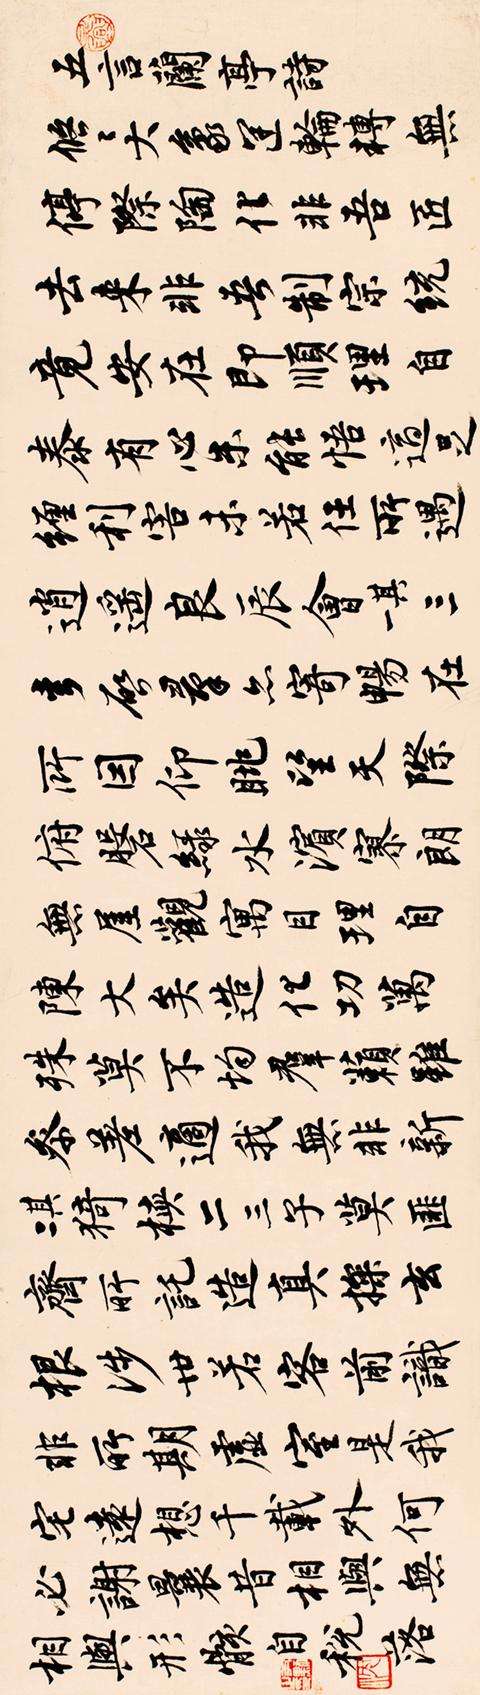 五言蘭亭詩
悠々大象運輪轉無
停際陶化非吾匠
去來非吾制宗統
竟安在即順理自
泰有心未能悟適足
纏利害未若任所遇
逍遥良辰會其一三
春啓羣品寄暢在
所因仰眺望天際
俯磐綠水濱寥朗
無厓觀寓目理自
陳大矣造化功萬
殊莫不均羣籟雖
參差適我無非新
其二猗歟二三子莫匪
齊所託造真探玄
根涉世若客前識
非所期虛室是我
宅遠想千載外何
必謝曩昔相與無
相與形骸自脫落